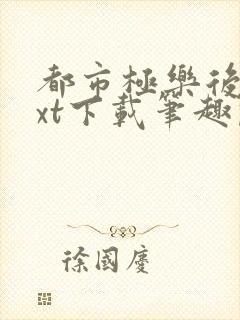 都市極樂後
xt下載筆趣
徐國慶